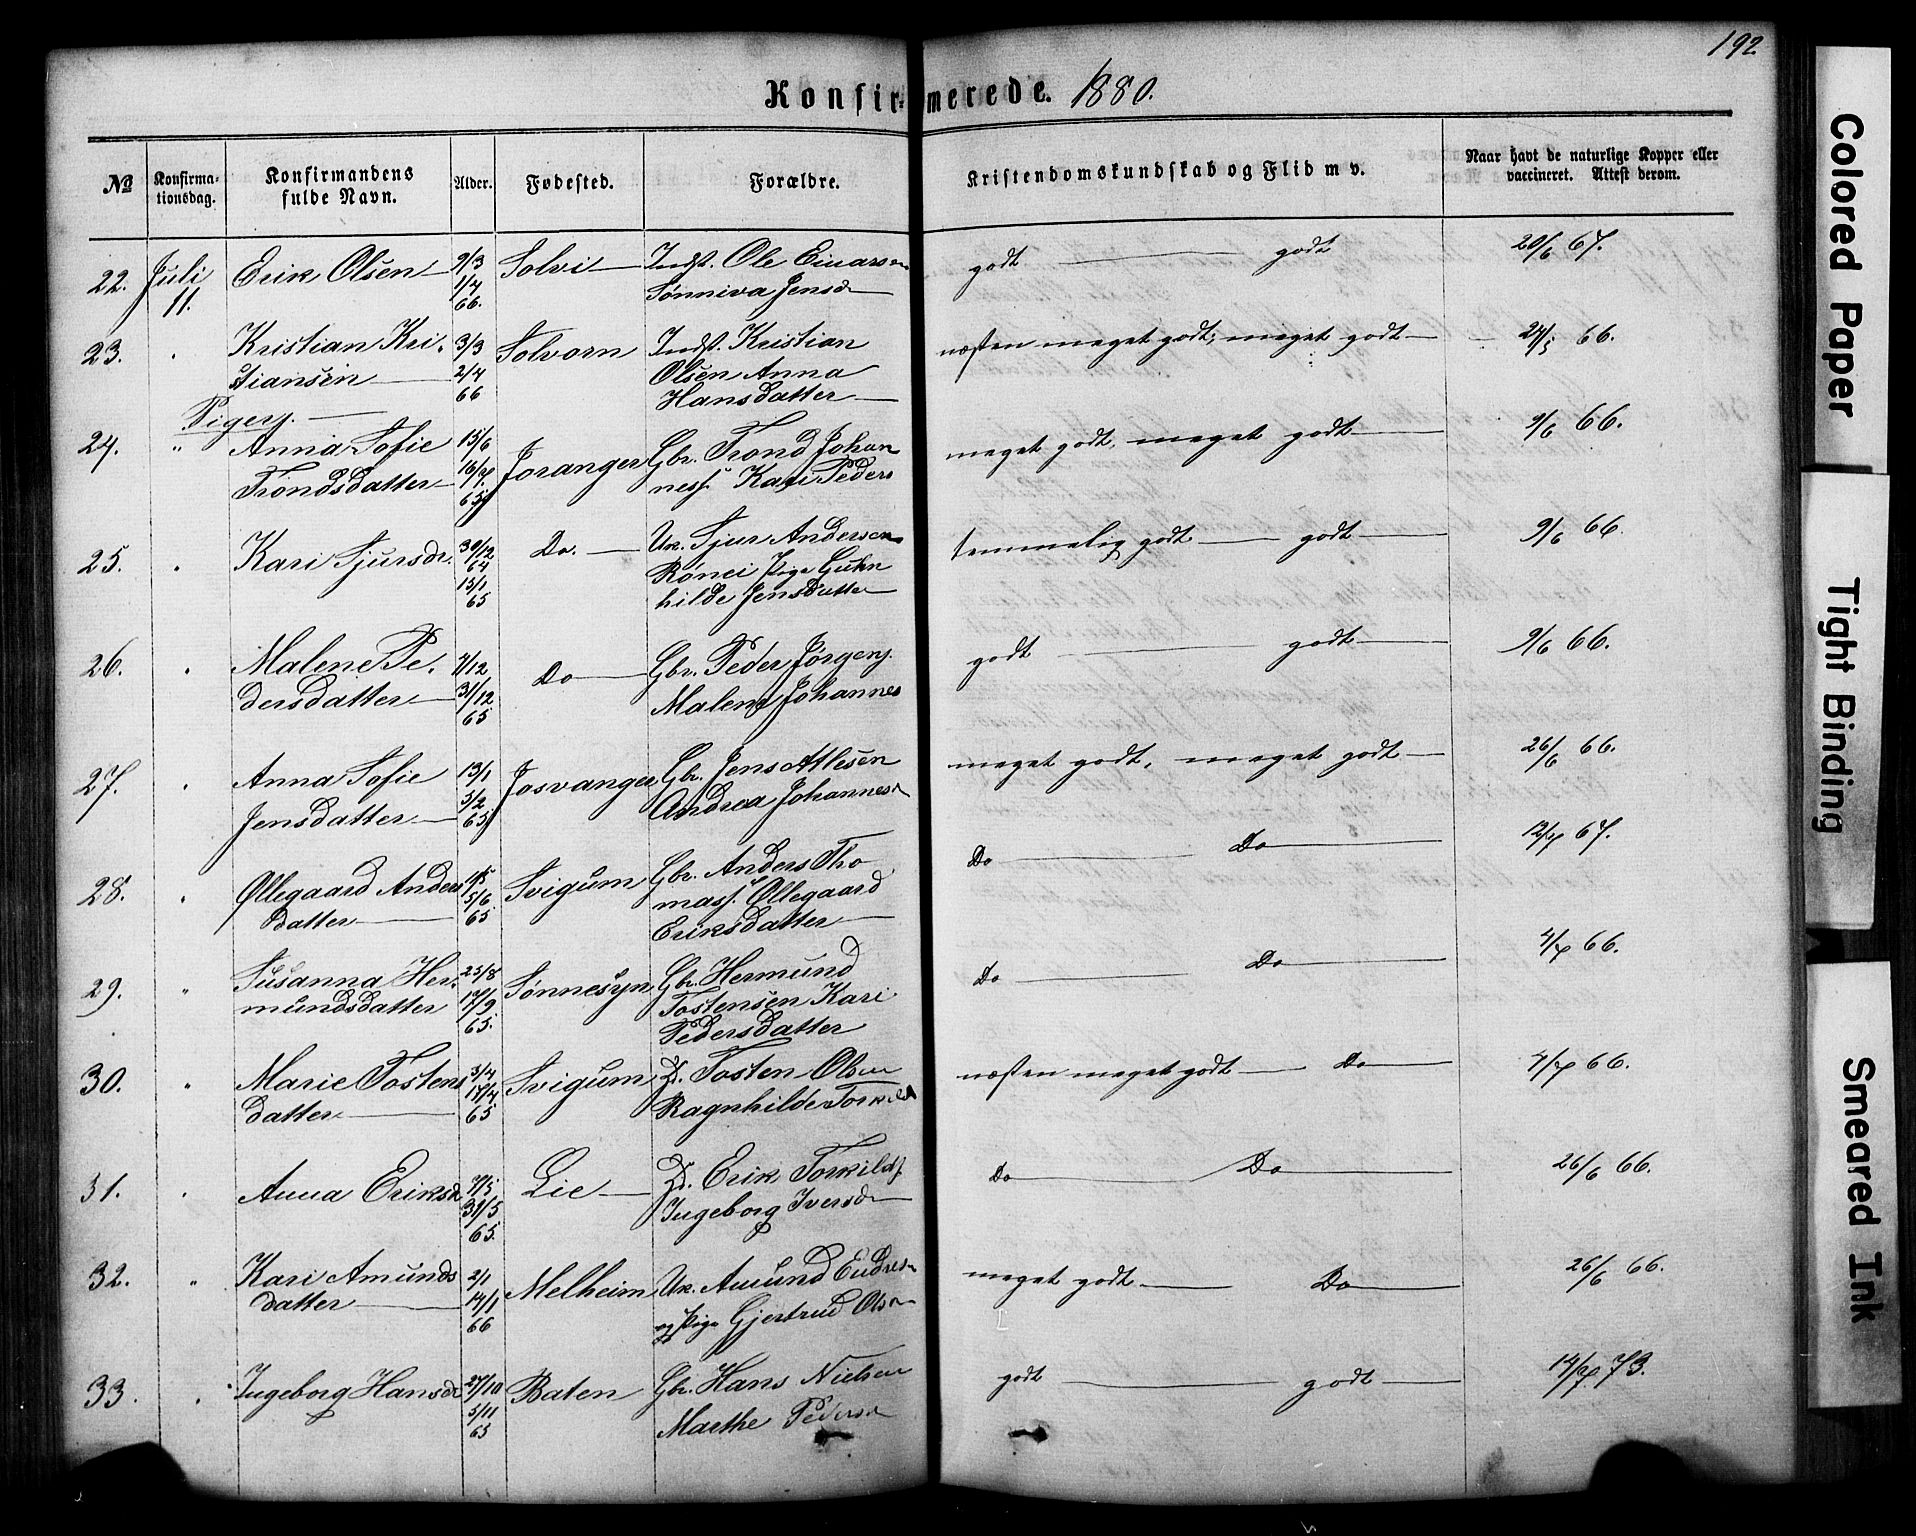 192
Konfirmerede. 1880.
No
Konfirma-
tionsdag.
Konfirmandens
fulde Navn.
Alder.
Fødested.
Forældre.
Kristendomskundskab og Flid m v.
Naar havt de naturlige Kopper eller
vaccineret. Attest derom.
22. Juli Erik Olsen 9/3 Solvi Indst. Ole Einarsen godt godt 20/6 67.
11. 1/4 Sønniva Jensd
66.
23. " Kristian Kri- 3/3 Solvorn Indst. Kristian næsten meget godt, meget godt 24/5 66.
stiansen 2/4 Olsen Anna
66 Hansdatter
Piger.
24. " Anna Sofie 15/6 Joranger Gbr. Trond Johan meget godt, meget godt 9/6 66.
Trondsdatter 16/7 ness. Kari Peders
65
25. " Kari Sjursdr. 30/12 Do. Uk. Sjur Andersen temmelig godt godt 9/6 66.
64 Rønei Pige Guhn
15/1 hilde Jensdatter
65
26. " Malene Pe- 7/12 Do Gbr. Peder Jørgens. godt godt 9/6 66.
dersdatter 31/12 Malene Johannes
65
27. " Anna Sofie 13/1 Josvanger Gbr. Jens Atlesen meget godt, meget godt 26/6 66.
Jensdatter 5/2 Andrea Johannesd
65
28. " Øllegaard Anders Svigum Gbr. Anders Tho Do Do 12/7 67.
datter 5/6 mass. Øllegaard
65 Eriksdatter
29. " Susanna Her- 25/8 Sønnesyn Gbr. Hermund Do Do 4/7 66.
mundsdatter 17/9 Tostensen Kari
65. Pedersdatter
30. " Marie Tostens 3/4 Svigum Pd. Tosten Olsen næsten meget godt Do 4/7 66.
datter 17/4 Ragnhilde Torkilsd
65
31. " Anna Eriksd 7/5 Lie Pd. Erik Torkilds. Do Do 26/6 66.
31/5 Ingeborg Iversd
65.
32. " Kari Amunds 2/1 Melheim Uk. Amund Endresen meget godt Do 26/6 66.
datter 14/1 og Pige Gjertrud Olsen
66
33. " Ingeborg Hansdr 27/10 Baten Gbr. Hans Nielsen godt godt 14/7 73.
5/11 Marthe Pedersd
65
Colored Paper
Tight Binding
Smeared Ink